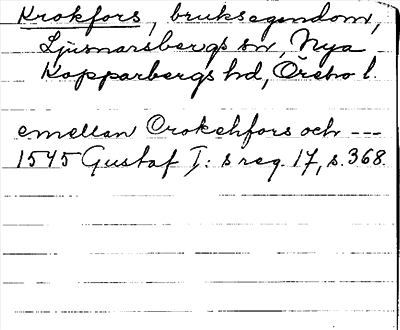 Krokfors, bruksegendom,
Ljusnarsbergs sn, Nya
Kopparbergs hd, Örebro l.
emellan Crokehfors och ---
1545 Gustaf I: s reg. 17, s. 368.